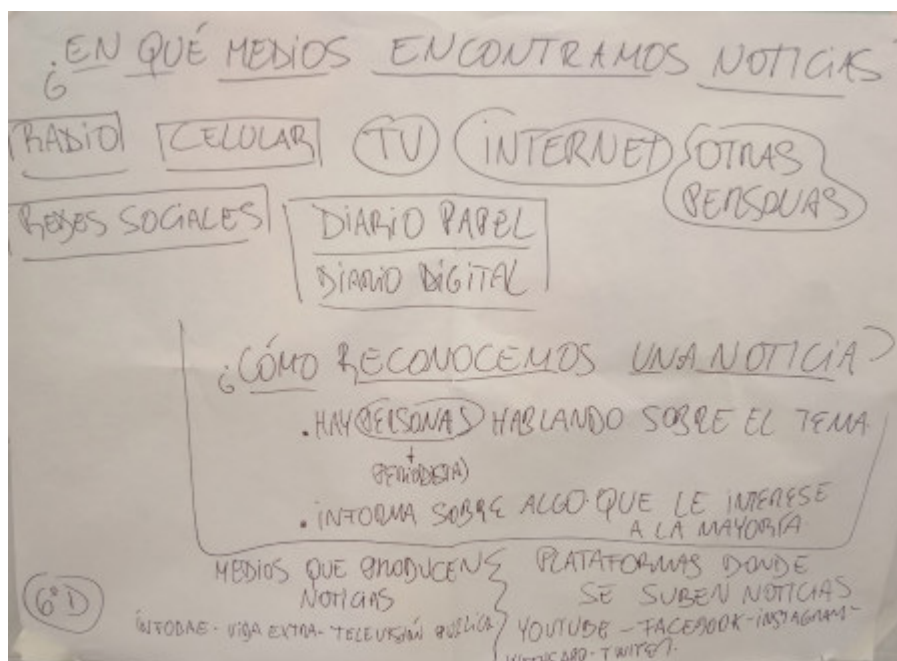 ¿EN QUÉ MEDIOS ENCONTRAMOS NOTICIAS
RADIO CELULAR TV INTERNET OTRAS
PERSONAS
REDES SOCIALES DIARIO PAPEL
DIARIO DIGITAL
¿CÓMO RECONOCEMOS UNA NOTICIA?
. HAY PERSONAS HABLANDO SOBRE EL TEMA
. INFORMA SOBRE ALGO QUE LE INTERESE
A LA MAYORÍA.
MEDIOS QUE PRODUCEN
NOTICIAS
INFOBAE - VIDA EXTRA - TELEVISIÓN PUBLICA
PLATAFORMAS DONDE
SE SUBEN NOTICIAS
YOUTUBE - FACEBOOK - INSTAGRAM -
TWITER.
6° D